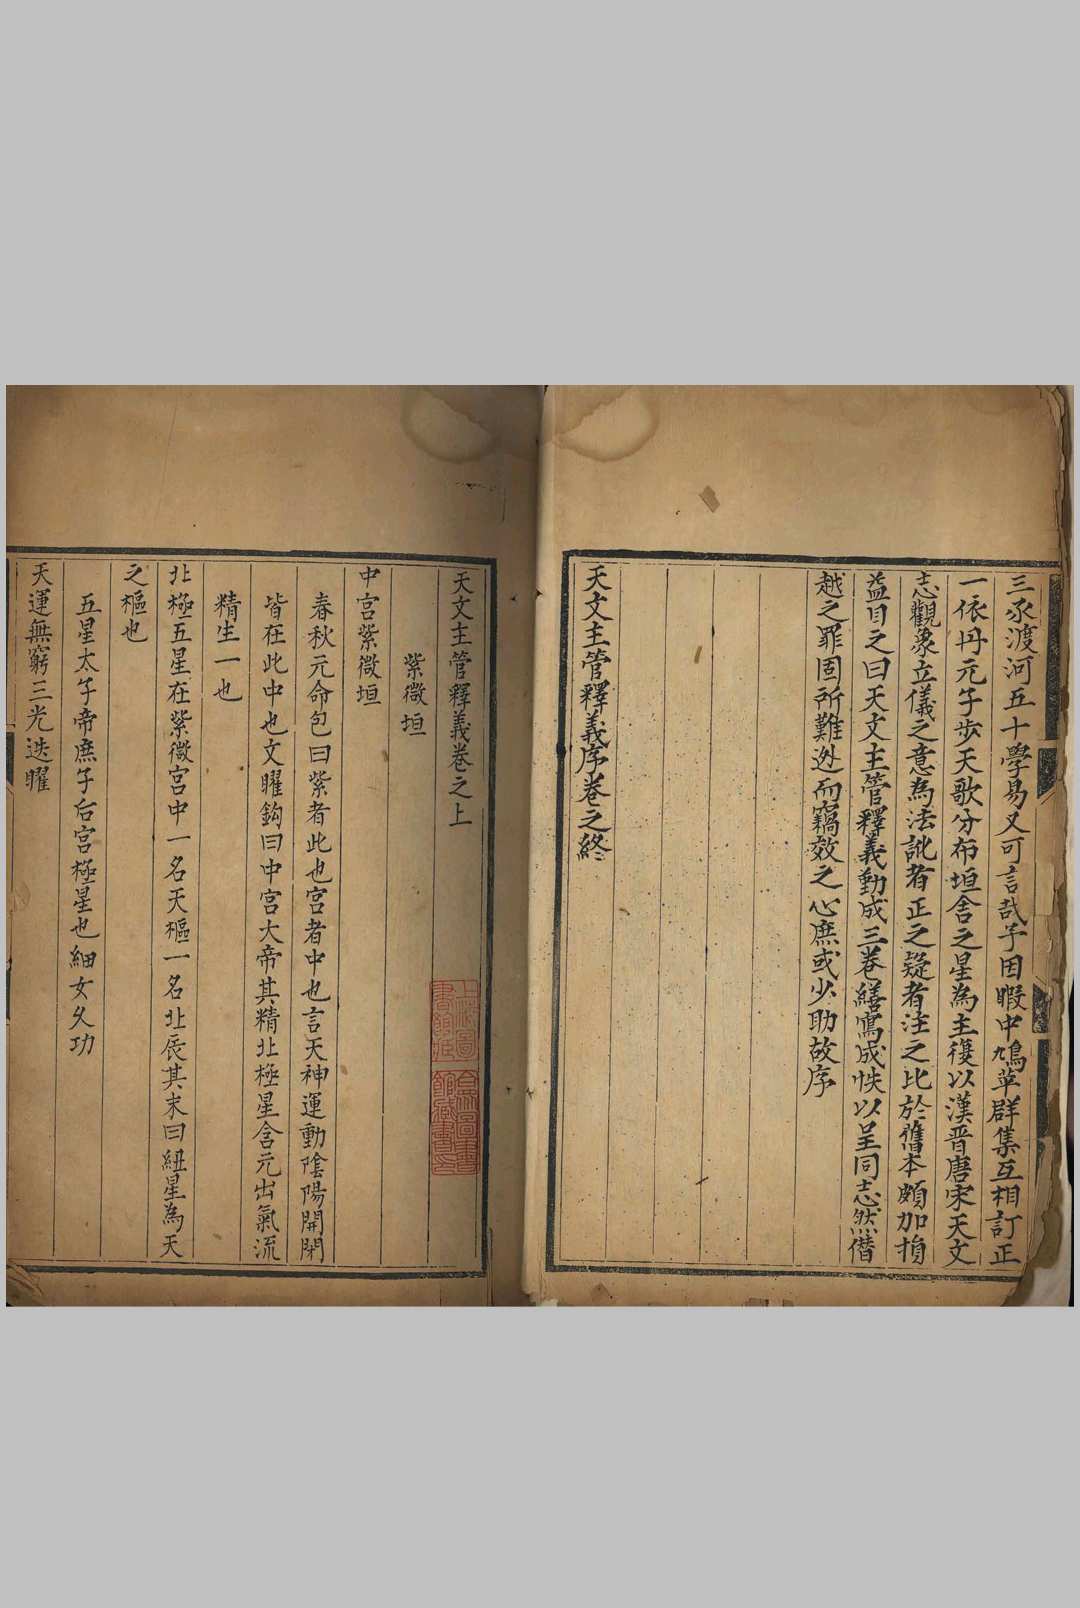 三豕渡河五十學易又可言哉予因暇中鳩萃群集互相訂正
一依丹元子步天歌分布垣舍之星為主復以漢晉唐宋天文
志觀象立儀之意為法訛者正之疑者注之比於舊本頗加損
益目之曰天文主管釋義勤成三卷繕寫成帙以呈同志然僭
越之罪固所難迯而竊效之心庶或少助故序
天文主管釋義序卷之終
天文主管釋義卷之上
紫微垣
中宮紫微垣
春秋元命包曰紫者此也宮者中也言天神運動陰陽開閉
皆在此中也文曜鈎曰中宮大帝其精北極星含元出氣流
精生一也
北極五星在紫微宮中一名天樞一名北辰其末曰紐星為天
之樞也
五星太子帝庶子后宮極星也細女久功
天運無窮三光迭曜